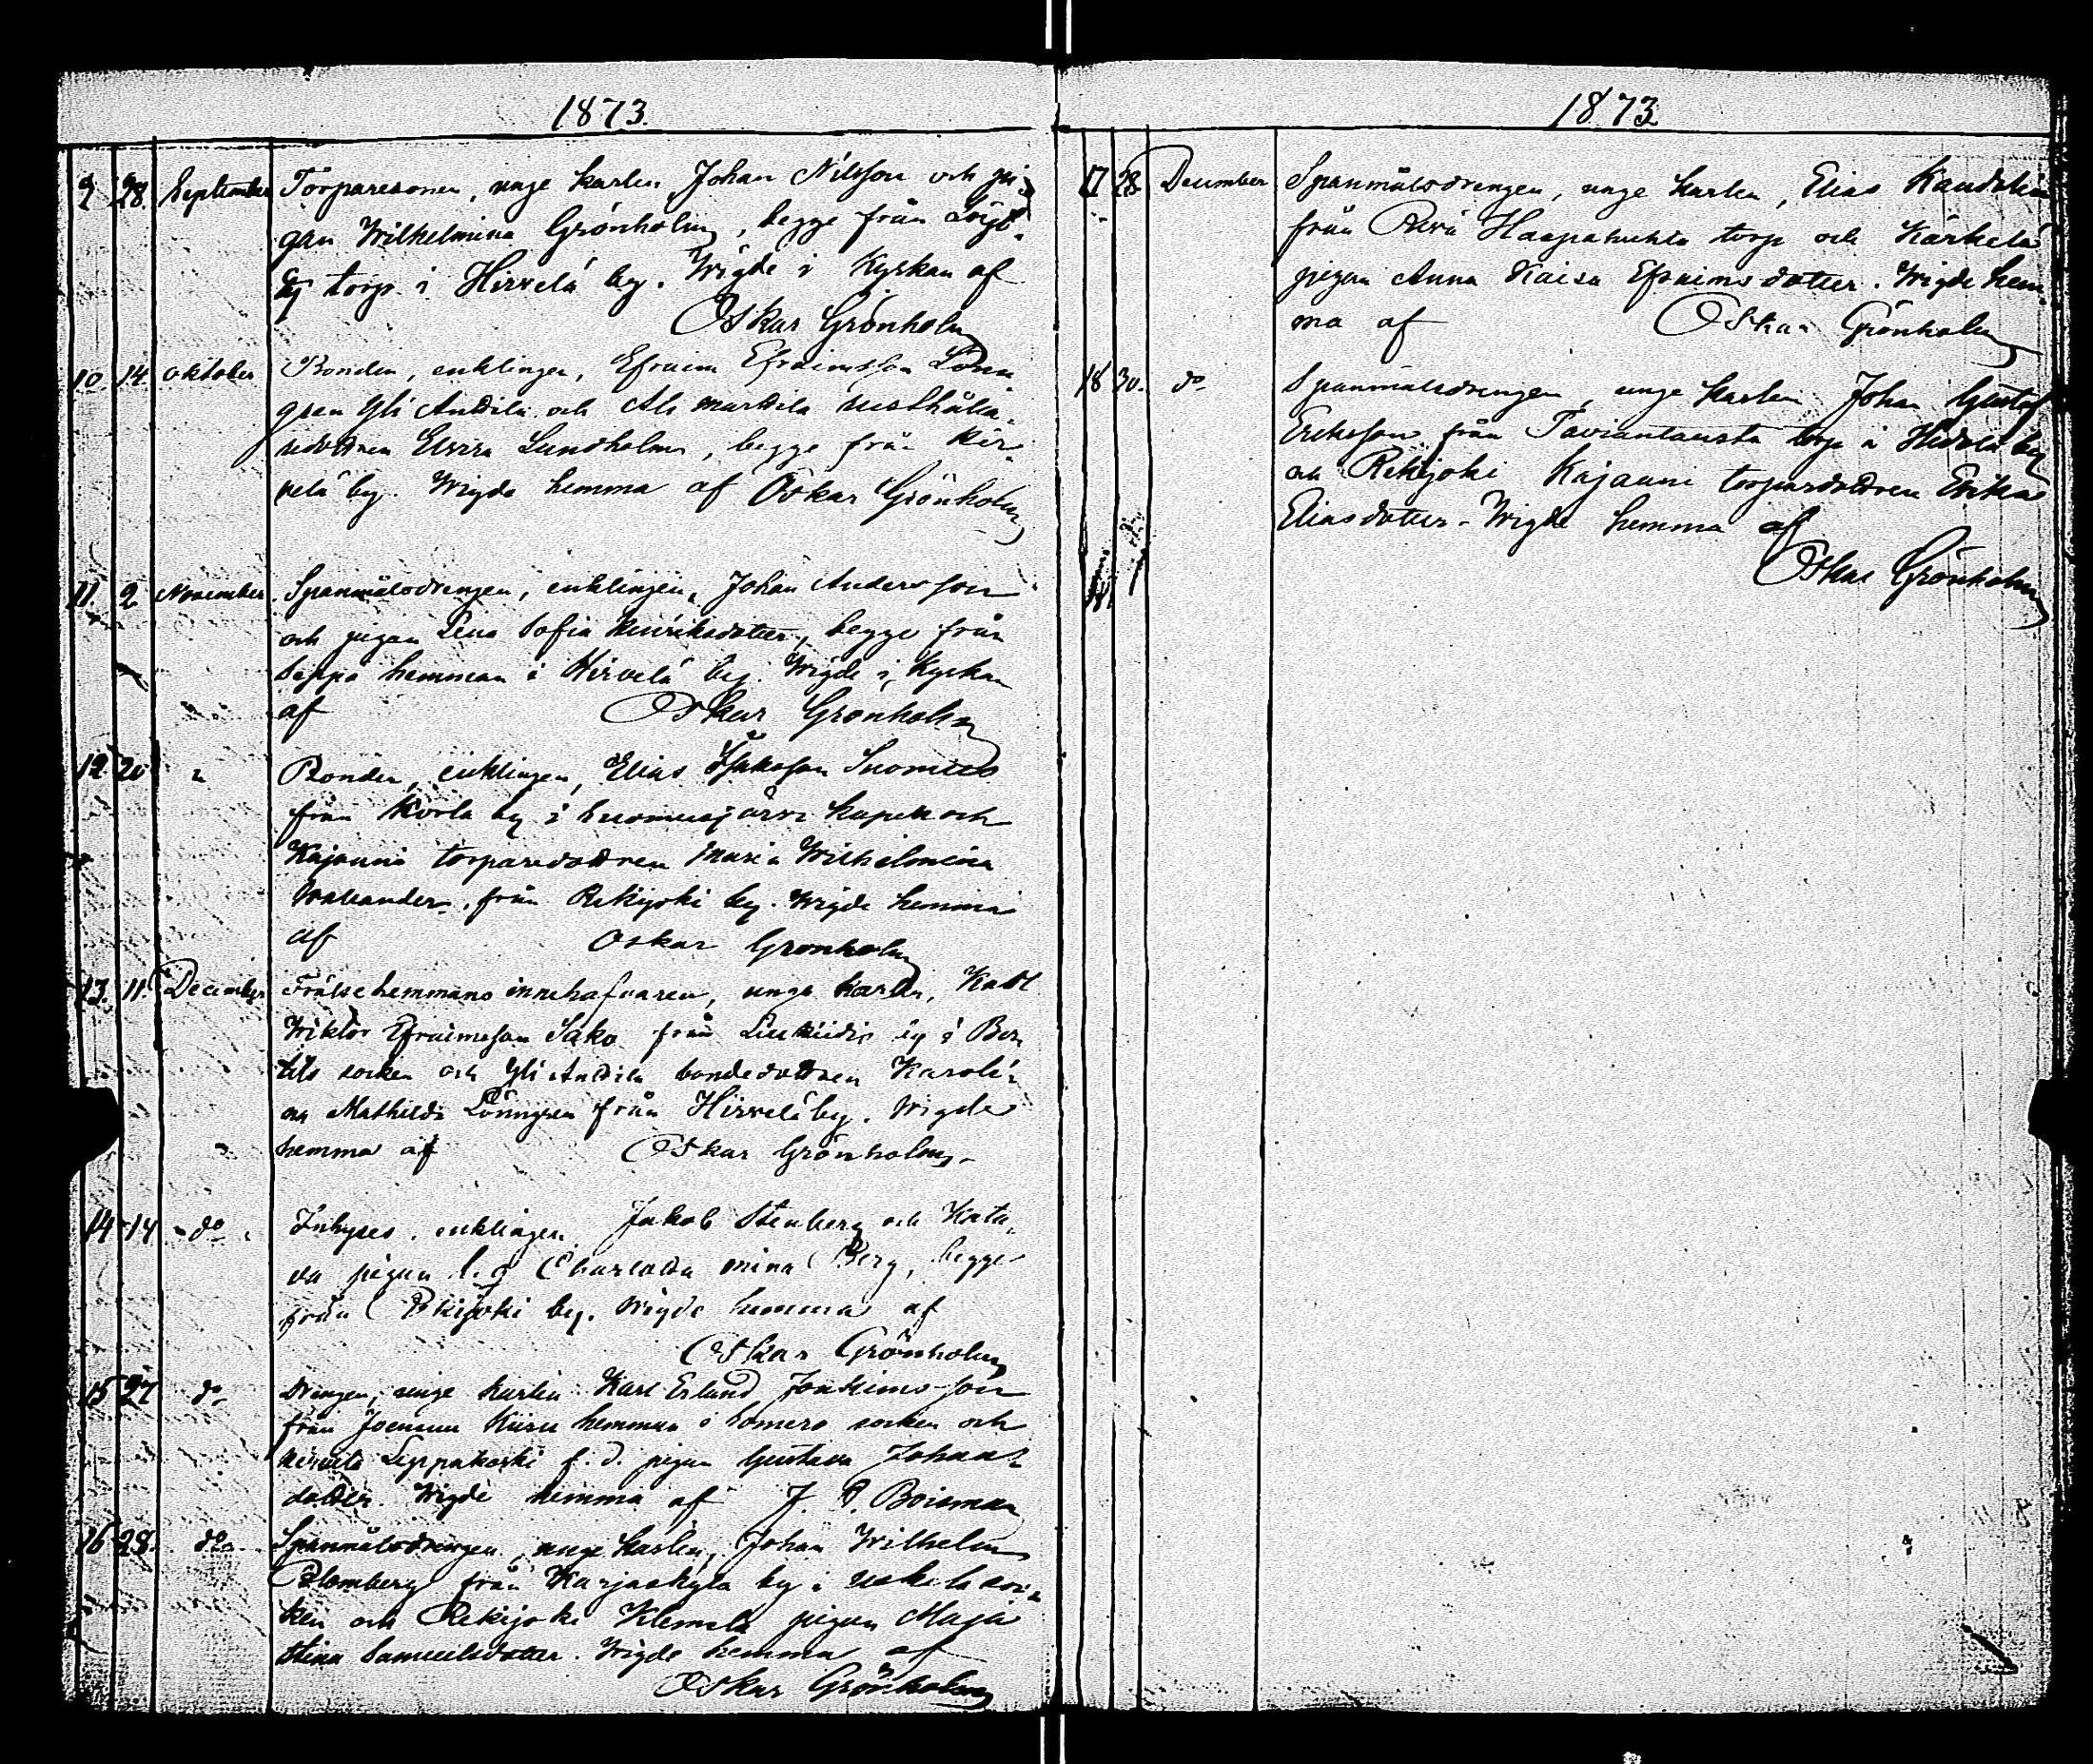 1873.
9 28. September Torparesonen, unge karlen Johan Nilsson och pi-
gan Wilhelmina Grönholm, begge från
torp i Hirvelä by. Wigde i Kyrkan af
Oskar Grönholm
10. 14. Oktober Bonden, enklingen, Efraim Efraimsson Lönn-
gren Yli Anttila och Ali Marttila rusthålla-
redottren Elvira Lundholm, begge från Hir-
velä by. Wigde hemma af Oskar Grönholm
11. 2 November. Spanmålsdrengen, enklingen, Johan Andersson
och pigan Lena Sofia Henriksdotter, begge från
Seppä hemman i Hirvelä by. Wigde i Kyrkan
af Oskar Grönholm
12 20 " Bonden, enklingen, Elias Isaksson Suomies
från by i Suomusjärvi kapell och
Kajanni torparedottren Maria Wilhelmina
Wallander, från Rekijoki by. Wigde hemma
af Oskar Grönholm
13. 11. December Frälsehemmans innehafvaren, unge karlen, Karl
Wiktor Efraimsson Sako från by i Ber-
tils socken och Yli Anttila bondedottren Karoli-
na Mathilda Lönngren från Hirvelä by. Wigde
hemma af Oskar Grönholm.
14 14 do Inhyses, enklingen Jakob Stenberg och
pigan Charlotta Mina Berg, begge
från Rekijoki by. Wigde hemma af
Oskar Grönholm
15 27 do Drengen, unge karlen Karl Erland Joakimsson
från Joensuu Kiisu hemman i Somero socken och
Hirvelä Leppäkoski f. d. pigan Gustava Johans-
dotter. Wigde hemma af J. R. Boisman
16 28. do Spanmålsdrengen, unge karlen, Johan Wilhelm
Blomberg från Karjaskylä by i Uskela soc-
ken och Rekijoki Klemelä pigan Maja
Stina Samuelsdotter. Wigde hemma af
Oskar Grönholm
1873
17 28 December Spanmålsdrengen, unge karlen, Elias Kandolin
från Haapahuhta torp och Kärkelä
pigan Anna Kaisa Efraimsdotter. Wigde hem-
ma af Oskar Grönholm
18 30. do Spanmålsdrengen, unge karlen Johan Gustaf
Eriksson från Taviantausta torp i by
och Rekijoki Kajanni torparedottren Erika
Eliasdotter. Wigde hemma af
Oskar Grönholm